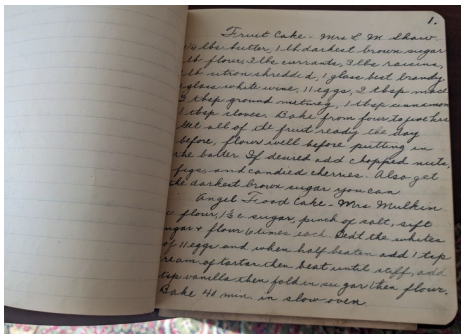 1.
Fruit Cake - Mrs L M Shaw
lbs butter, 1 lb darkest brown sugar
lb flour, 2 lbs currants, 3 lbs raisins,
lb citron shredded, 1 glass best brandy
glass white wine, 11 eggs, 2 tbsp mace
3 tbsp ground nutmeg, 1 tbsp cinnamon
1 tbsp cloves. Bake from four to hrs
Get all of the fruit ready the day
before, flour well before putting in
the batter. If desired add chopped nuts,
figs, and candied cherries. Also get
the darkest brown sugar you can
Angel Food Cake - Mrs Mulkin
c flour, 1½ c sugar, pinch of salt, sift
sugar & flour 6 times each. Beat the whites
of 11 eggs and when half beaten add 1 tsp
cream of tartar then beat until stiff, add
tsp vanilla then fold in sugar then flour.
Bake 41 min. in slow oven